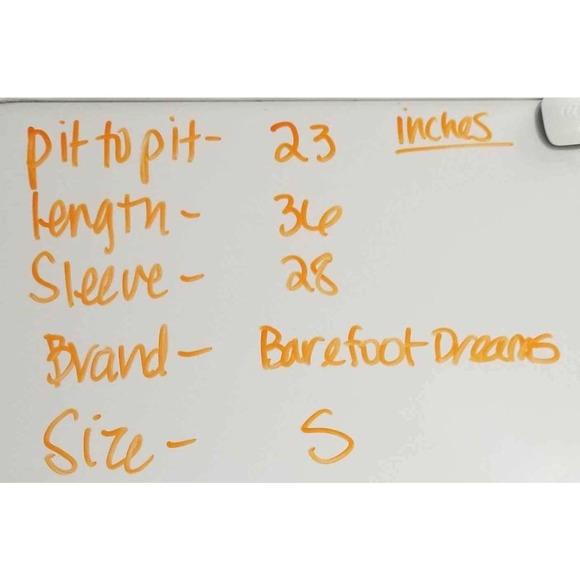 pit to pit- 23 inches
length - 36
Sleeve - 28
Brand - Barefoot Dreams
Size - S